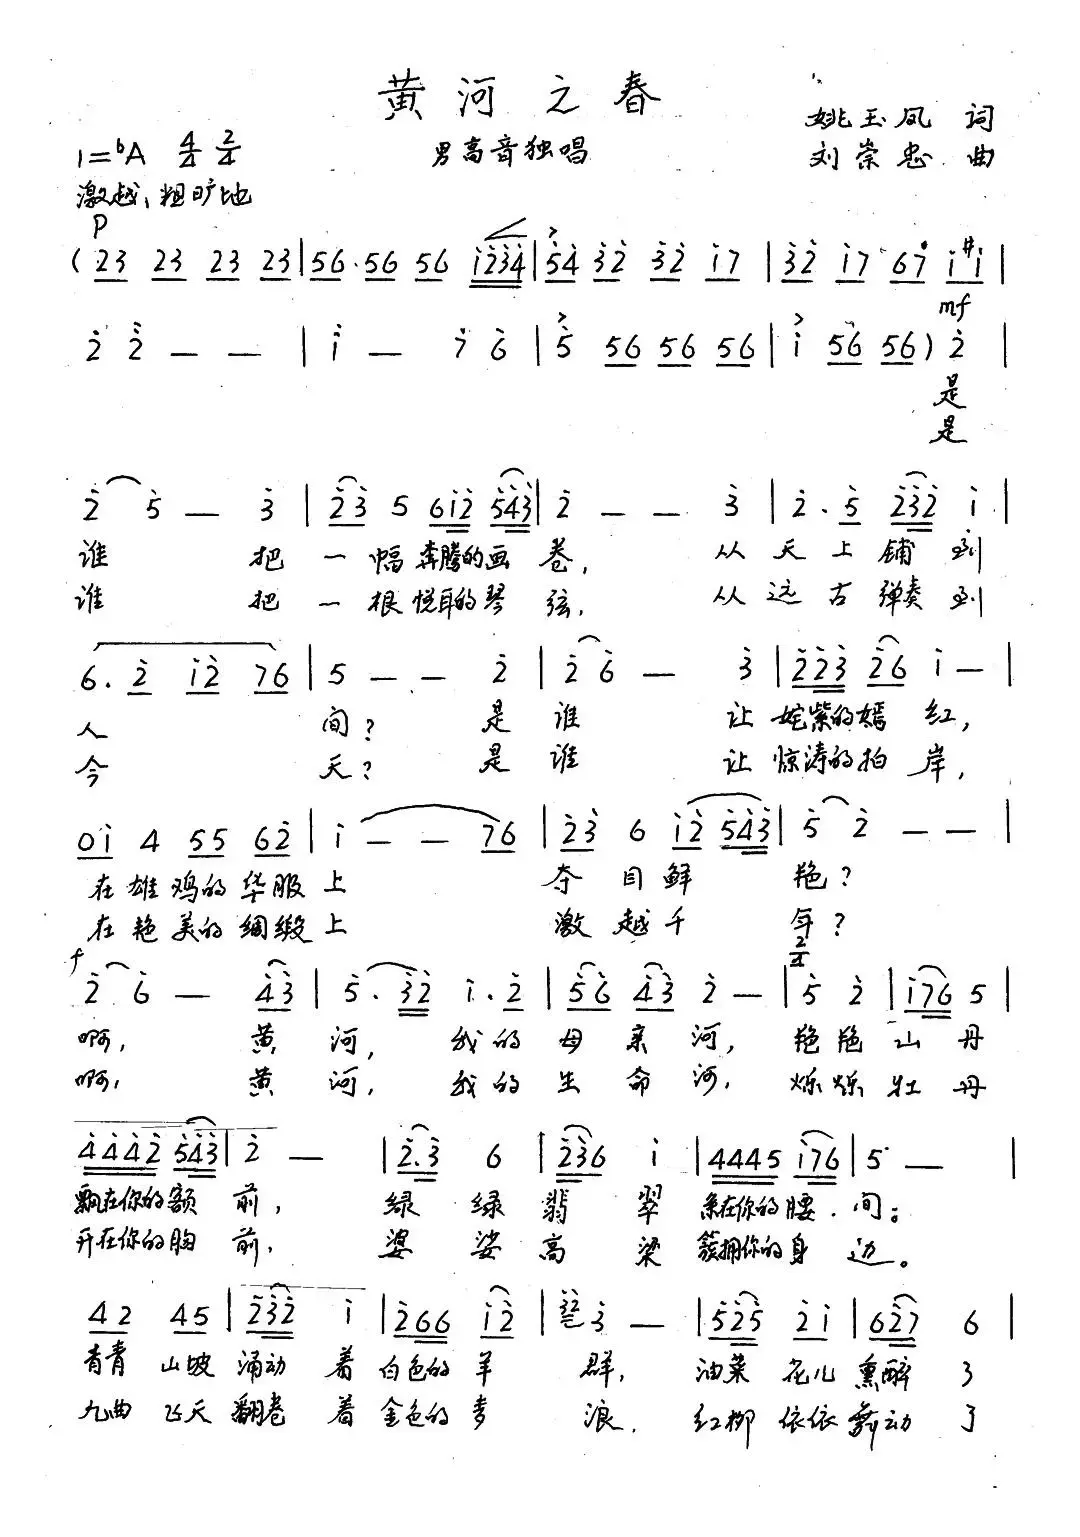 黄河之春
姚玉凤 词
1=♭A 4/4 2/4 男高音独唱 刘崇忠 曲
激越、粗旷地
p
(23 23 23 23|56·56 56 i̇2̇3̇4̇|5̇4̇ 3̇2̇ 3̇2̇ i̇7|3̇2̇ i̇7 67 i̇#i̇|
mf
2̇ 2̇ — —|i̇ — 7 6|5 56 56 56|i̇ 56 56) 2̇|
是
是
2̇ 5̇ — 3̇|2̇3̇ 5 6i̇2̇ 5̇4̇3̇|2̇ — — 3̇|2̇. 5̇ 2̇3̇2̇ i̇|
谁 把 一 幅 奔腾的画 卷, 从 天 上 铺 到
谁 把 一 根 悦耳的琴 弦, 从 远 古 弹奏 到
6. 2̇ i̇2̇ 76|5 — — 2̇|2̇ 6 — 3̇|2̇2̇3̇ 2̇6 i̇ —|
人 间? 是 谁 让 姹紫的嫣 红,
今 天? 是 谁 让 惊涛的拍 岸,
0i̇ 4 55 62̇|i̇ — — 76|2̇3̇ 6 i̇2̇ 5̇4̇3̇|5̇ 2̇ — —|
在雄 鸡的 华服 上 夺 目 鲜 艳?
在艳 美的 绸缎 上 激 越 千 年?
f 2/4
2̇ 6 — 4̇3̇|5̇. 3̇2̇ i̇. 2̇|5̇6̇ 4̇3̇ 2̇ —|5̇ 2̇|i̇76 5|
啊, 黄 河, 我 的 母 亲 河, 艳 艳 山 丹
啊, 黄 河, 我 的 生 命 河, 烁 烁 牡 丹
4̇4̇4̇2̇ 5̇4̇3̇|2̇ —|2̇.3̇ 6|2̇3̇6 i̇|4445 i̇76|5 —|
飘在你的额 前, 绿 绿 翡 翠 系在你的腰 间;
开在你的胸 前, 婆 娑 高 粱 簇拥你的身 边。
42 45|2̇3̇2̇ i̇|2̇66 i̇2̇|3̇2̇3̇ —|5̇2̇5̇ 2̇i̇|62̇7 6|
青青 山坡 涌动 着 白色的 羊 群, 油菜 花儿 熏醉 了
九曲 飞天 翻卷 着 金色的 麦 浪, 红柳 依依 舞动 了